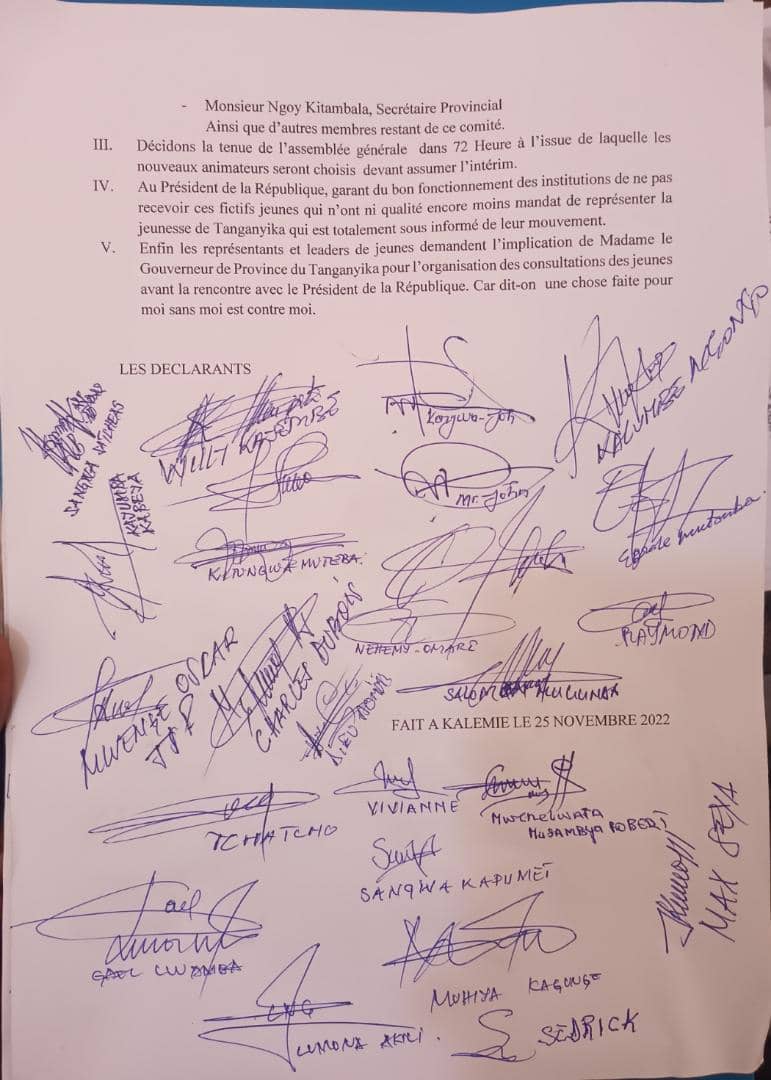 - Monsieur Ngoy Kitambala, Secrétaire Provincial
Ainsi que d'autres membres restant de ce comité.
III. Décidons la tenue de l'assemblée générale dans 72 Heure à l'issue de laquelle les
nouveaux animateurs seront choisis devant assumer l'intérim.
IV. Au Président de la République, garant du bon fonctionnement des institutions de ne pas
recevoir ces fictifs jeunes qui n'ont ni qualité encore moins mandat de représenter la
jeunesse de Tanganyika qui est totalement sous informé de leur mouvement.
V. Enfin les représentants et leaders de jeunes demandent l'implication de Madame le
Gouverneur de Province du Tanganyika pour l'organisation des consultations des jeunes
avant la rencontre avec le Président de la République. Car dit-on une chose faite pour
moi sans moi est contre moi.
LES DECLARANTS
KAJEMBE
KALUMBE
Mr. John
KAYUMBA
KABEYA
KITUNGWA MUTEBA
NEHEMY-OMARE
RAYMOND
MWENGE OSCAR
CHARLES DUBOIS
DIEU DONNÉ
FAIT A KALEMIE LE 25 NOVEMBRE 2022
VIVIANNE
TCHATCHO
MUSAMBYA ROBERT
SANGWA KAPUMET
MAX
GAEL LWAMBA
MUHIYA
LUMONA AKILI.
SEDRICK